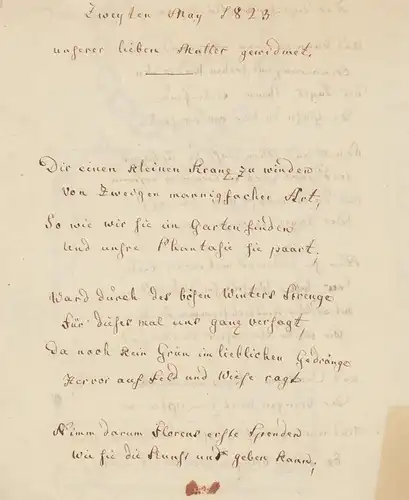 Zweyten May 1823
unserer lieben Mutter gewidmet.
Dir einen kleinen Kranz zu winden
von Zweigen mannigfacher Art,
So wie wir sie im Garten finden
und unsre Phantasie sie paart,
Ward durch des bösen Winters Strenge
Für dieses mal uns ganz versagt,
Da noch kein Grün im lieblichen Gedränge
Hervor auf Feld und Wiese ragt
Nimm darum Florens erste Spenden
wie sie die Kunst uns geben kann,